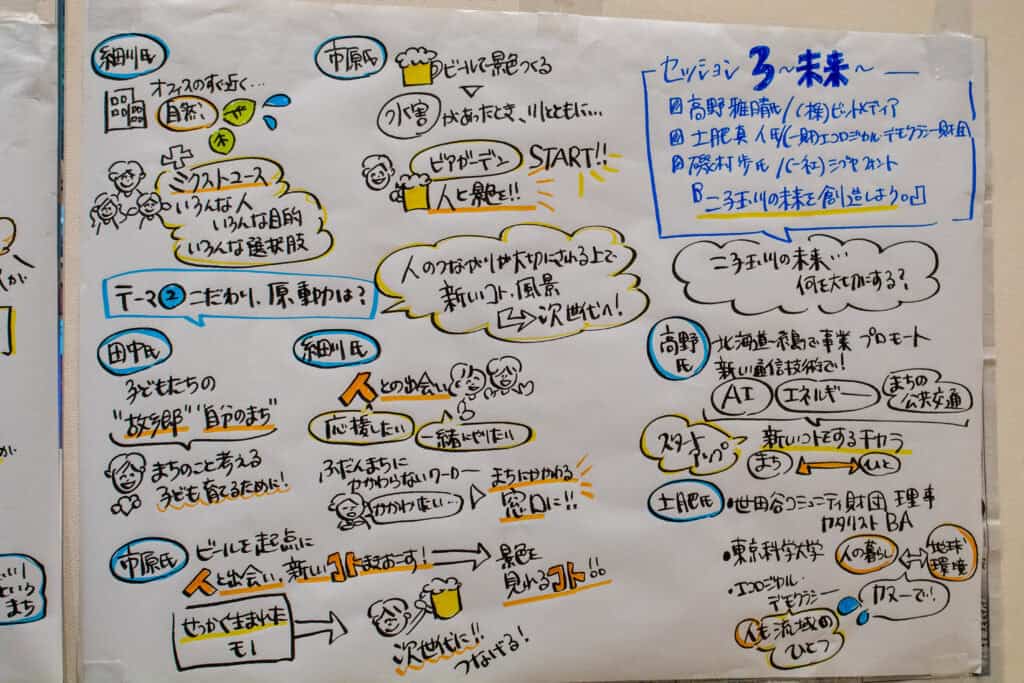 細川氏
オフィスのすぐ近く…
自然、
ミクストユース
いろんな人
いろんな目的
いろんな選択肢
市原氏
ビールで景色つくる
水害があったとき、川とともに…
ビアガーデン START!!
人と景色を!!
人のつながりが大切にされる上で
新しいコト、風景
次世代へ!
テーマ② こだわり、原動力は?
田中氏
子どもたちの
"故郷" "自分のまち"
まちのこと考える
子ども育てるために!
細川氏
人との出会い
応援したい
一緒にやりたい
ふだんまちに
かかわらないワーカー
かかわりたい…
まちにかかわる
窓口に!!
市原氏
ビールを起点に
人と出会い、新しいコトまきおこす!
景色を
見れるコト!!
せっかく生まれた
モノ
次世代に!!
つなげる!
セッション 3 ~未来~
高野雅晴氏/(株)ビットメディア
土肥真人氏/(一財)エコロジカル・デモクラシー財団
磯村歩氏/(一社)シブヤフォント
『二子玉川の未来を創造しよう。』
二子玉川の未来…
何を大切にする?
高野氏
北海道で事業 プロモート
新しい通信技術で!
AI
エネルギー
まちの
公共交通
スタート
アップ
新しいコトをするチカラ
まち
ひと
土肥氏
・世田谷コミュニティ財団 理事
カタリストBA
・東京科学大学
人の暮らし
地球
環境
・エコロジカル・
デモクラシー
カヌーで!
人も流域の
ひとつ
まち